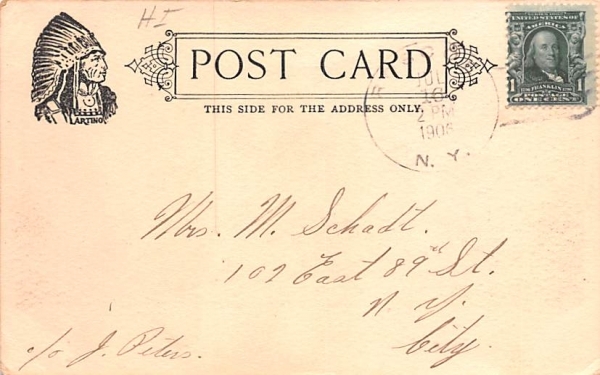 HI
POST CARD
THIS SIDE FOR THE ADDRESS ONLY.
LARTINO
JUL
2 PM
N. Y.
UNITED STATES OF AMERICA
1 1
FRANKLIN
POSTAGE
ONE CENT
Mrs. M. Schadt.
109 East 89th St.
N. Y.
City.
c/o J. Peters.